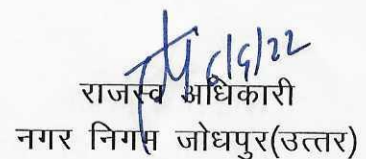 6/9/22
राजस्व अधिकारी
नगर निगम जोधपुर(उत्तर)